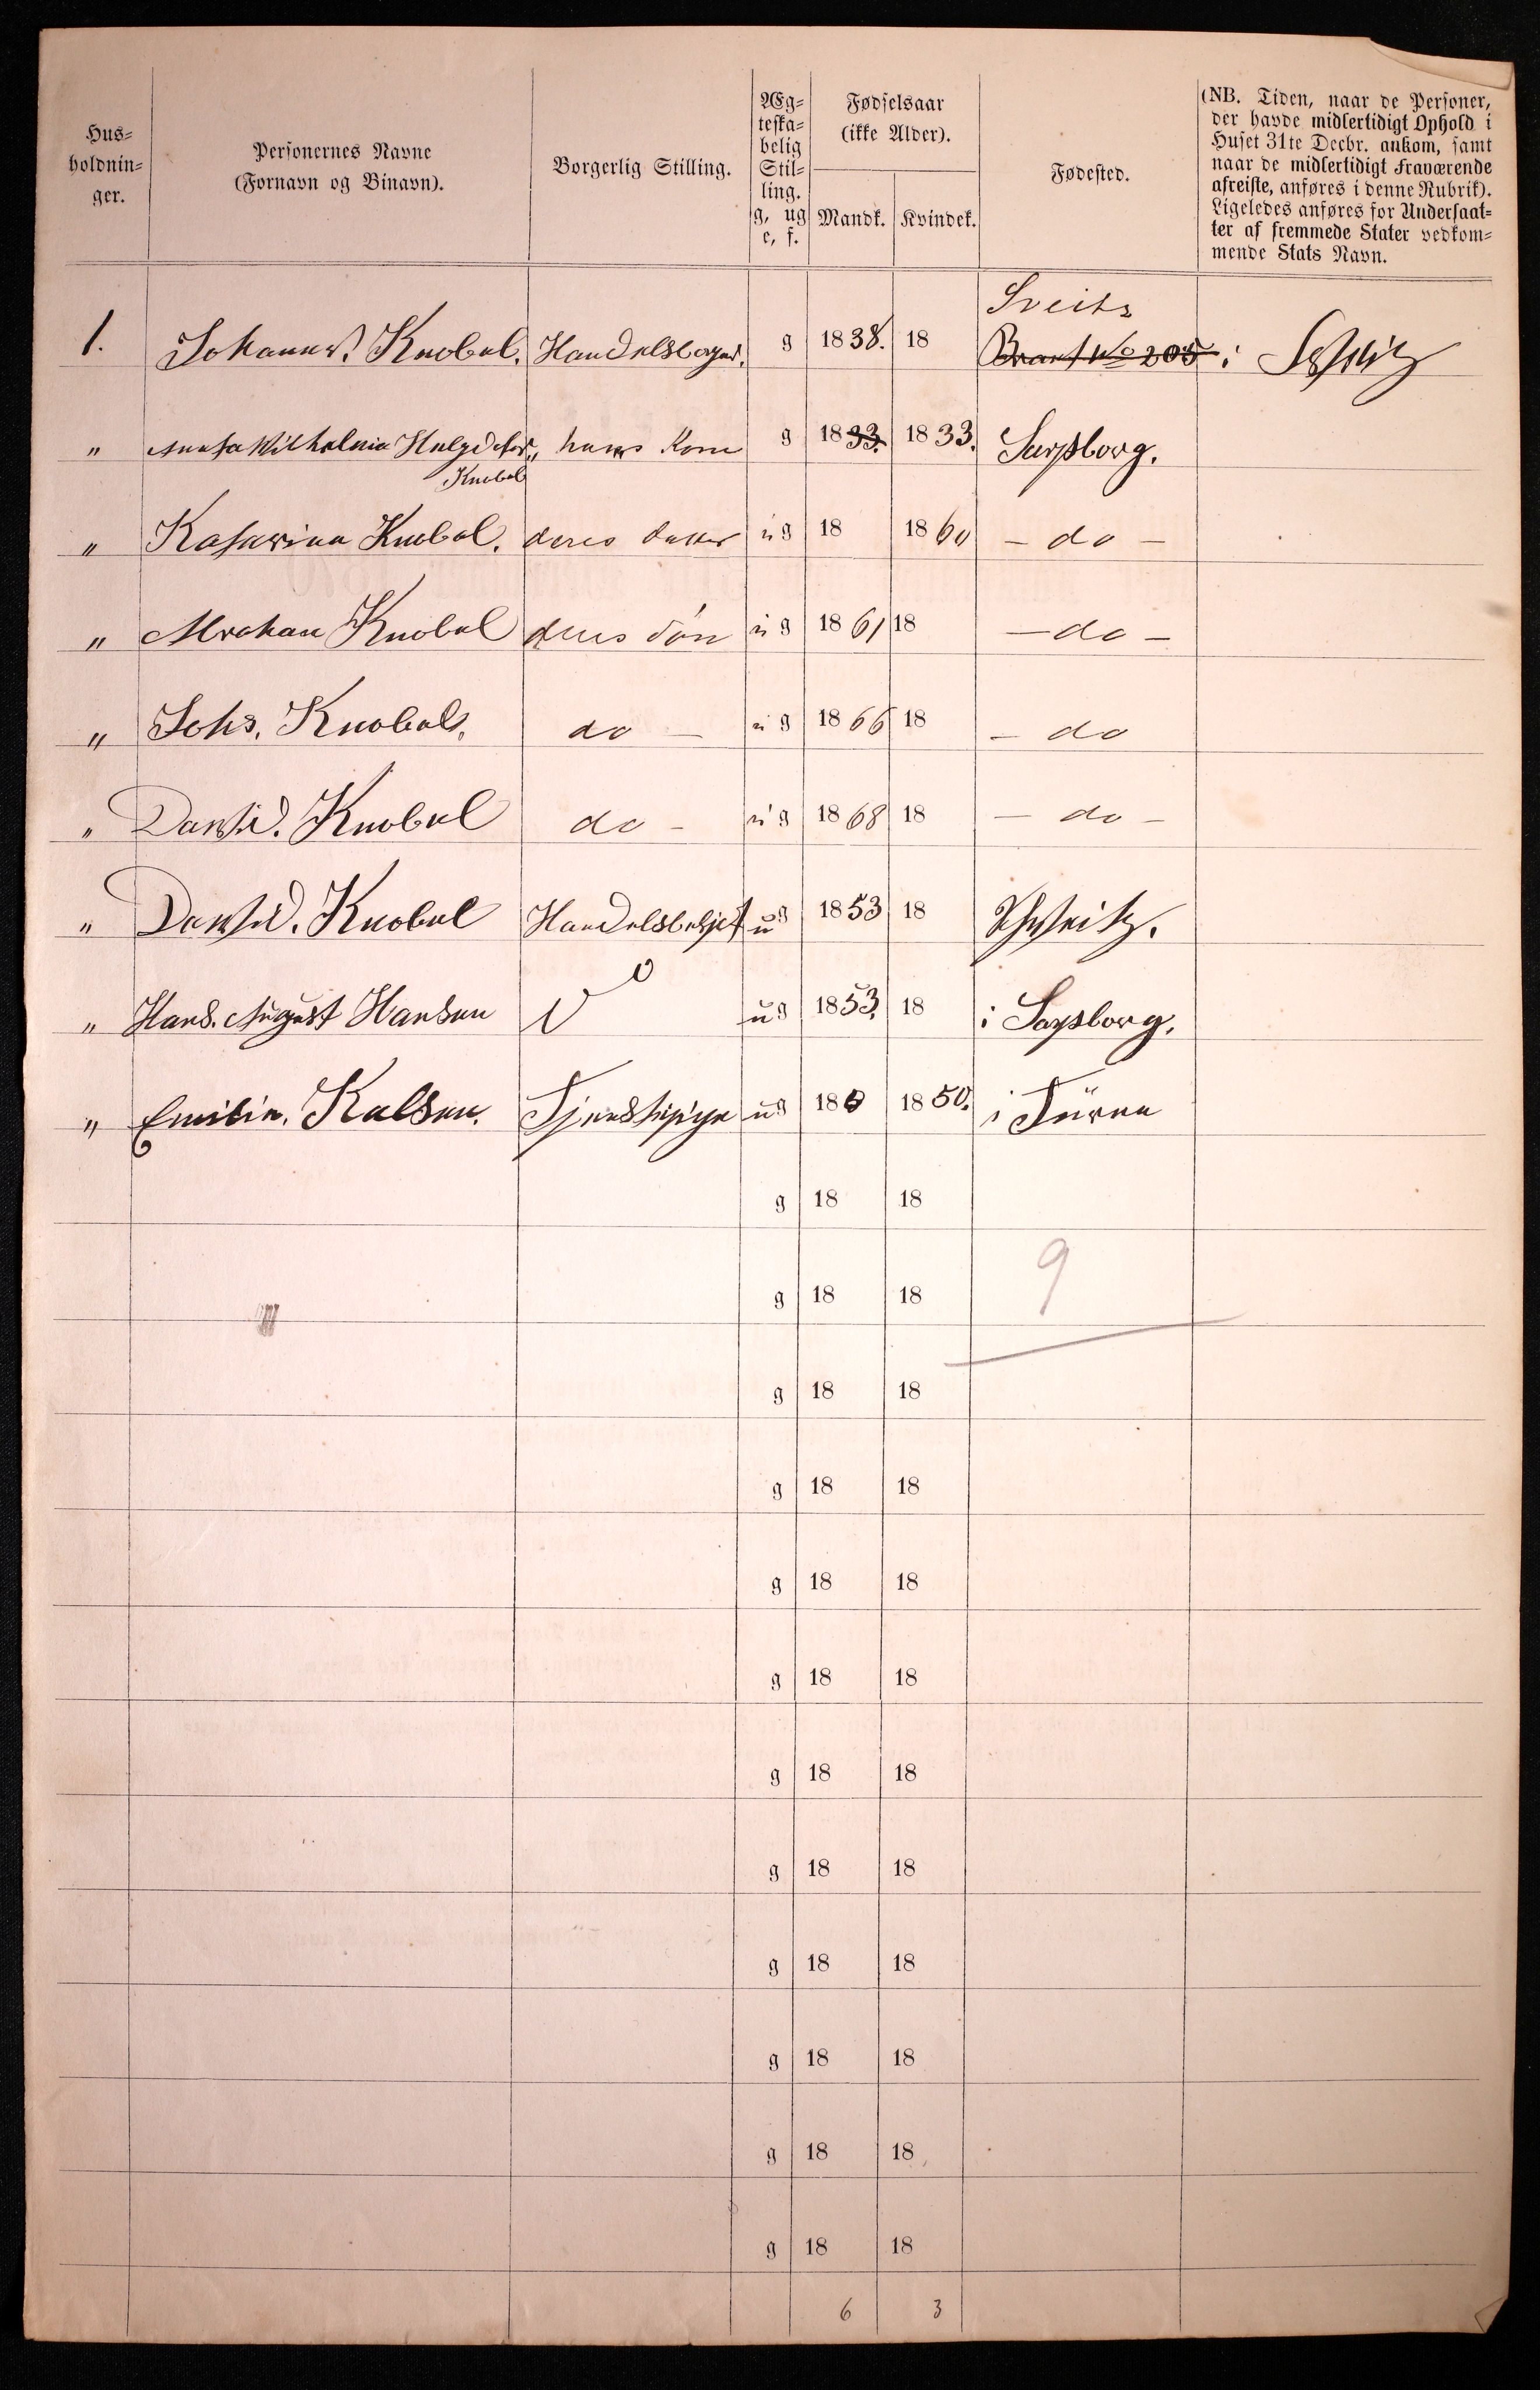 Hus=
holdnin=
ger.
Personernes Navne
(Fornavn og Binavn).
Borgerlig Stilling.
Æg=
teska=
belig
Stil=
ling.
g, ug
e, f.
Fødselsaar
(ikke Alder).
Mandk. Kvindek.
Fødested.
(NB. Tiden, naar de Personer,
der havde midlertidigt Ophold i
Huset 31te Decbr. ankom, samt
naar de midlertidigt Fraværende
afreiste, anføres i denne Rubrik).
Ligeledes anføres for Undersaat=
ter af fremmede Stater vedkom=
mende Stats Navn.
Sveits
1. Johannes. Knobel. Handelsborger. g 1838. 18 No 205 i
" Wilhelmia Knobel hans Kone g 1833. 1833. Sarpsborg.
" Katarina Knobel. deres datter ug 18 1860 - do -
" Abraham Knobel deres Søn ug 1861 18 - do -
" Johs. Knobel. do - ug 1866 18 - do
" David. Knobel do - ug 1868 18 - do -
" David. Knobel Handelsbetjet ug 1853 18 Schveitz.
" Hans. August Hansen ug 1853. 18 i Sarpsborg.
" Emilie. Kalsen. Tjenestepige ug 180 1850. i Tünne
g 18 18
9
g 18 18
g 18 18
g 18 18
g 18 18
g 18 18
g 18 18
g 18 18
g 18 18
g 18 18
g 18 18
g 18 18
6 3